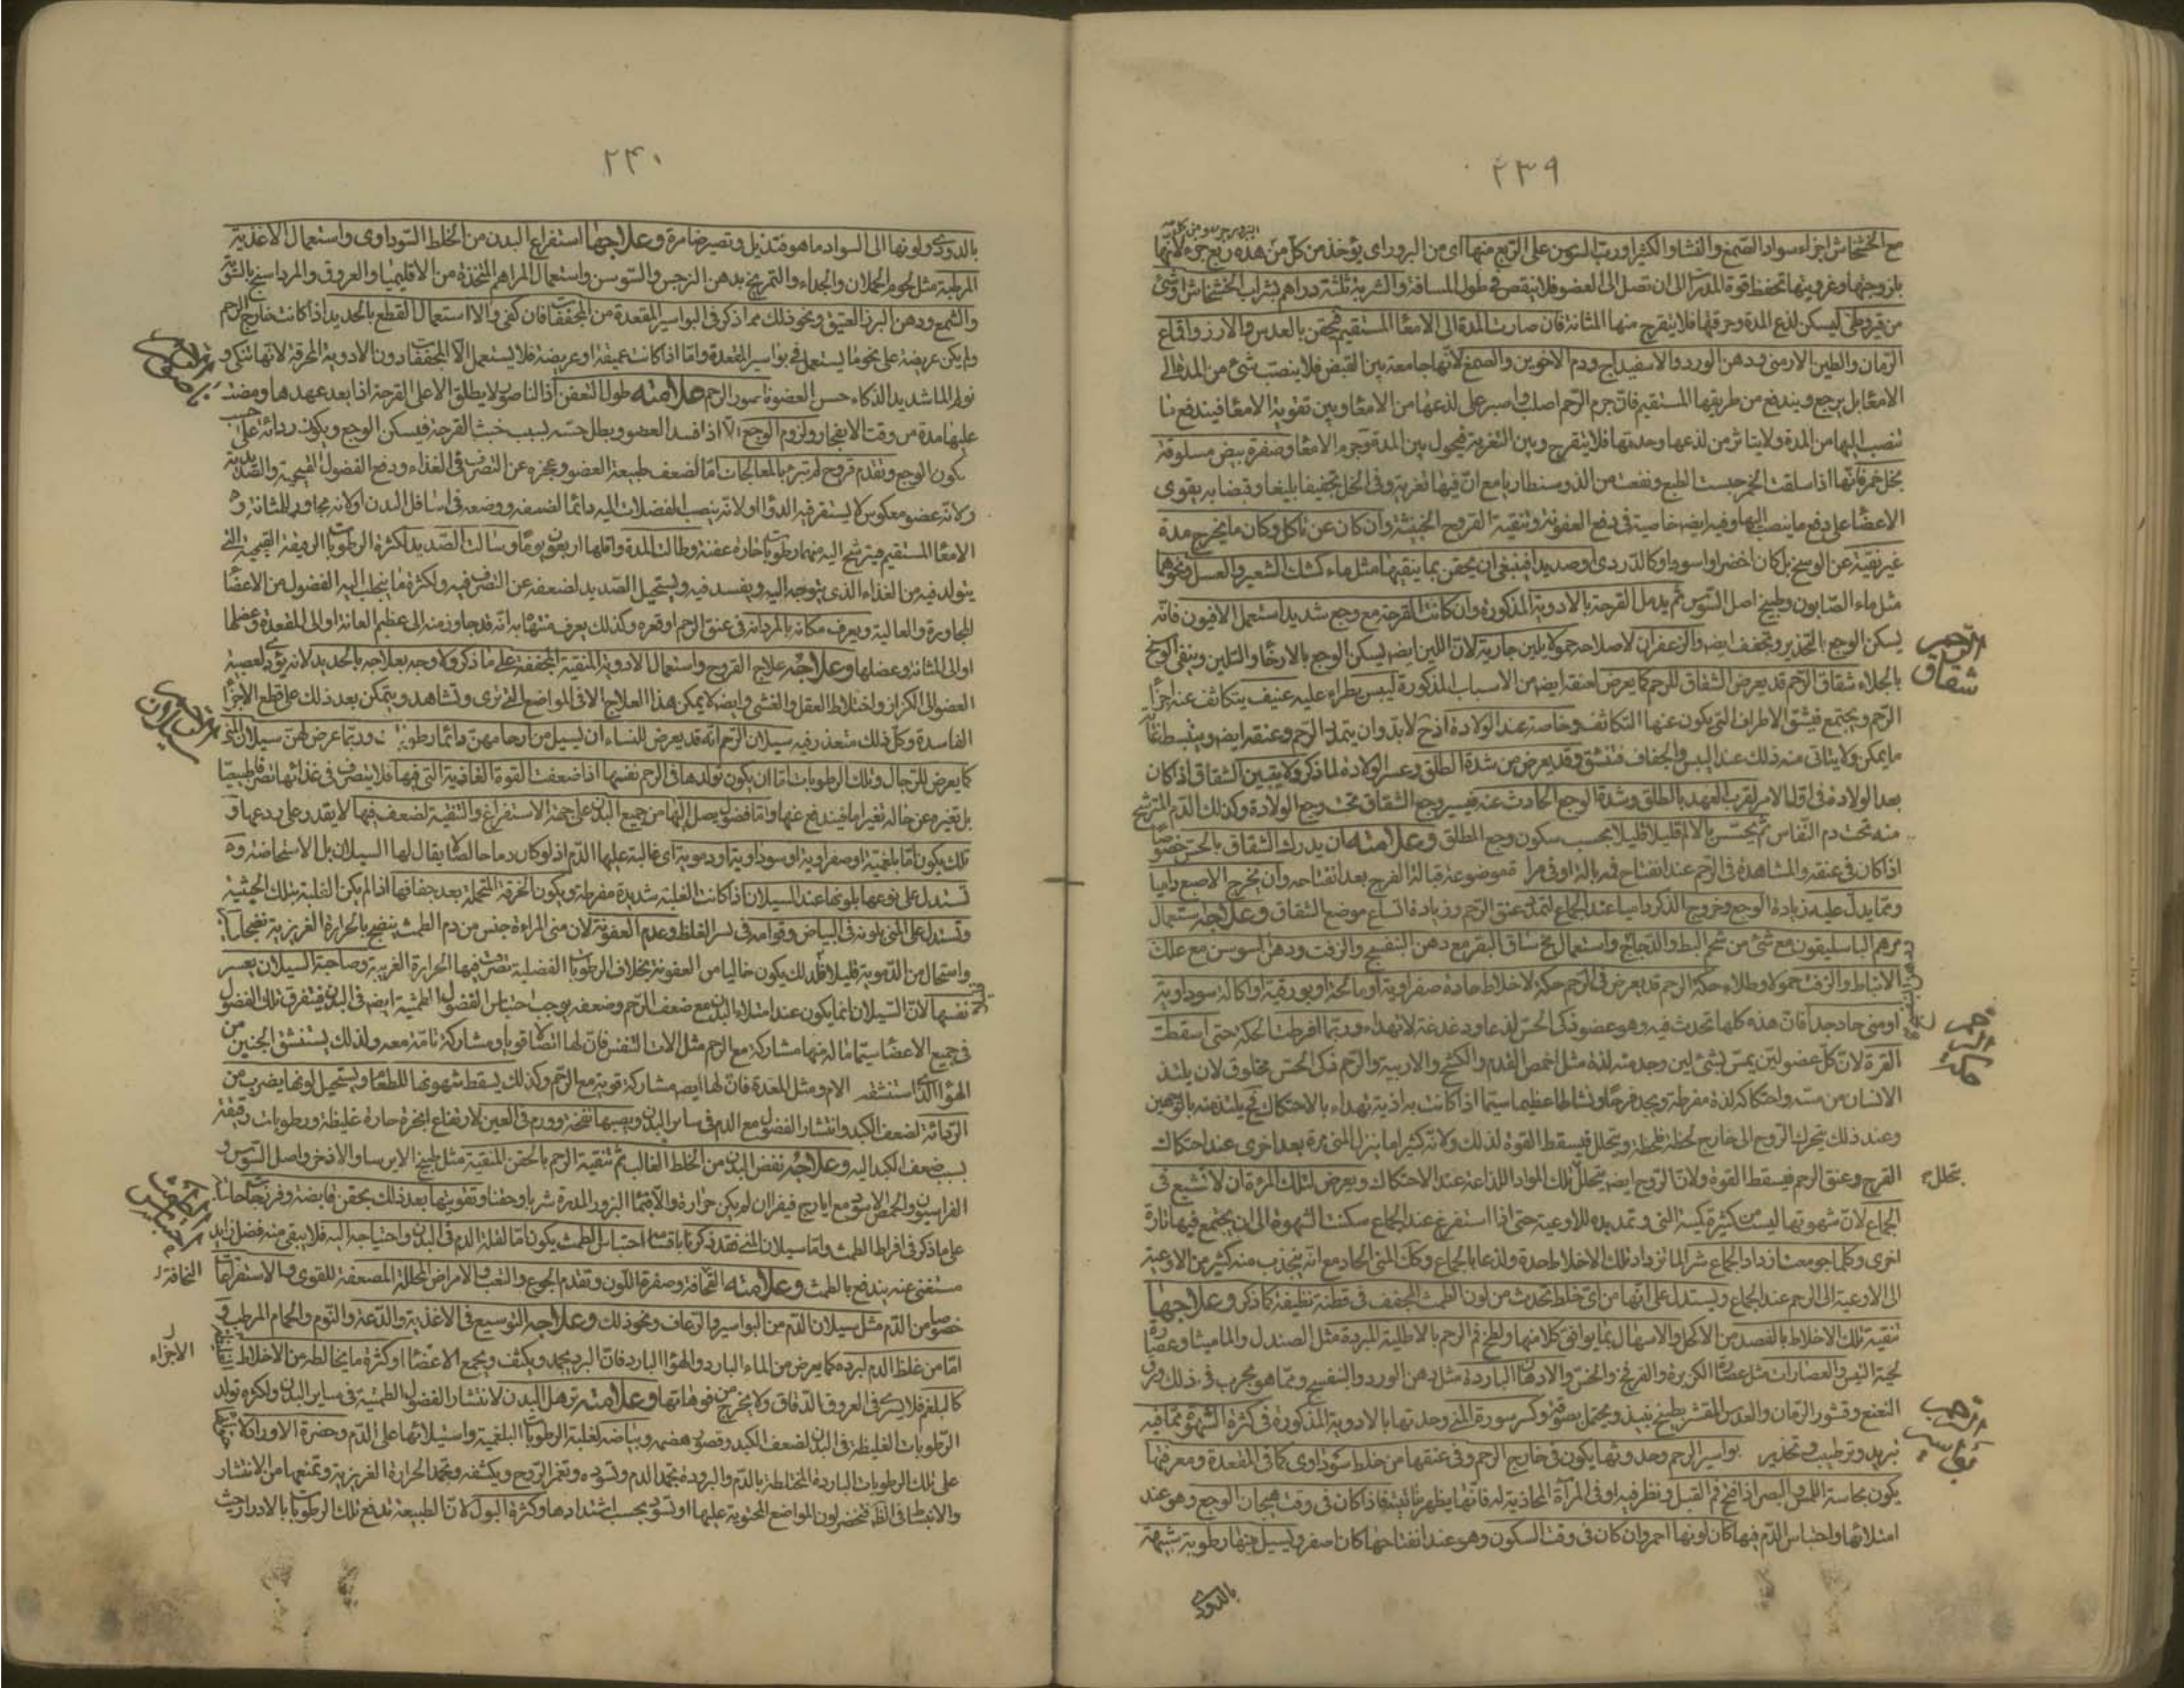 ٢٣٩
مع الخشخاش اجزاء سواء والصمغ والنشا والكثيرا ورب السوس على الربع منها اى من البزور اى يؤخذ من كل من هذه ربع جزء لانها
بلزوجتها وغرويتها تحفظ قوة المدرات الى ان تصل الى العضو فلا ينقص فى طول المسافة والشربة ثلثة دراهم بشراب الخشخاش او شئ
من قيروطى ليسكن لذع المدة وحرقتها فلا يتقرح منها المثانة فان صارت المدة الى الامعاء المستقيم فيحقن بالعدس والارز واقماع
الرمان والطين الارمنى ودهن الورد والاسفيداج ودم الاخوين والصمغ لانها جامعة بين القبض فلا ينصب شئ من المدة الى
الامعا بل يرجع ويندفع من طريقها المستقيم فان جرم الرحم اصلب واصبر على لذعها من الامعا وبين تقوية الامعا فيندفع ما
تنصب اليها من المدة ولا يتاثر من لذعها وحدتها فلا يتقرح وبين التغرية فيحول بين المدة وجرم الامعا وصفرة بيض مسلوقة
بخل خمر فانها اذا سلقت بالخمر حبست الطبع ونفعت من الذوسنطاريا مع ان فيها تغرية وفى الخل تجفيفا بليغا وقبضا به يقوى
الاعضا على دفع ما ينصب اليها وفيه ايضه خاصية فى دفع العفونة وتنقية القروح الخبيثة وان كان عن تاكل وكان ما يخرج مدة
غير نقية عن الوسخ بل كان اخضر او اسود او كالدردى او صديدا فينبغى ان يحقن بما ينقيها مثل ماء كشك الشعير والعسل ونحوهما
مثل ماء الصابون وطبيخ اصل السوس ثم يدمل القرحة بالادوية المذكورة وان كانت القرحة مع وجع شديد استعمل الافيون فانه
يسكن الوجع بالتخدير وتجفف ايضه والزعفران لاصلاحه حمولا بلبن جارية لان اللبن ايضه يسكن الوجع بالارخاء والتليين وينقى الوسخ
بالجلاء شقاق الرحم قد يعرض الشقاق للرحم كما يعرض لعنقه ايضه من الاسباب المذكورة ليبس يطراء عليه عنيف يتكاثف عنه اجزأ
الرحم ويجتمع فينشق الاطراف التى يكون عنها التكاثف وخاصة عند الولادة اذ ح لا بد وان يتمدد الرحم وعنقه ايضه وينبسط غاية
ما يمكن ولا يتاتى منه ذلك عند اليبس والجفاف فتنشق وقد يعرض من شدة الطلق وعسر الولادة لما ذكر ولا يتبين الشقاق اذا كان
بعد الولادة فى اول الامر لقرب العهد بالطلق وشدة الوجع الحادث عنه فيسير وجع الشقاق تحت وجع الولادة وكذلك الدم المترشح
منه تحت دم النفاس ثم يحس بالالم قليلا قليلا بحسب سكون وجع الطلق وعلامته ان يدرك الشقاق بالحس خصوصا
اذا كان فى عنقه والمشاهدة فى الرحم عند انفتاح فمه وان يخرج الاصبع داميا
ومما يدل عليه زيادة الوجع وخروج الذكر داميا عند الجماع لتمدد عنق الرحم وزيادة اتساع موضع الشقاق وعلاجه استعمال
مرهم الباسليقون مع شئ من شحم البط والدجاج واستعمال مخ ساق البقر مع دهن البنفسج والزفت ودهن السوسن مع علك
الانباط والزفت حمولا وطلاء حكة الرحم قد يعرض فى الرحم حكة لاخلاط حادة صفراوية او مالحة او بورقية او اكالة سوداوية
او منى حاد جدا فان هذه كلها تحدث فيه وهو عضو ذكى الحس لذعا ودغدغة لا تهداء وربما افرطت الحكة حتى اسقطت
القوة لان كل عضو لين يمس بشئ لين وجد منه لذة مثل اخمص القدم والكشح والاربية والرحم ذكى الحس مخلوق لان يلتذ
الانسان من مسه واحتكاكه لذة مفرطة ويجد فرحا ونشاطا عظيما سيما اذا كانت به اذية تهداء بالاحتكاك فح يلتذ منه بالوجهين
وعند ذلك يتحرك الروح الى خارج لحظة لحظة ويتحلل فيسقط القوة لذلك ولانه كثيرا ما ينزل المنى مرة بعد اخرى عند احتكاك
الفرج وعنق الرحم فيسقط القوة ولان الروح ايضه يتحلل تلك المواد اللذاعة عند الاحتكاك ويعرض لتلك المراة ان لا تشبع فى
الجماع لان شهوتها ليست من كثرة كمية المنى وتمديده للاوعية حتى اذا استفرغ عند الجماع سكنت الشهوة الى ان يجتمع فيها تارة
اخرى وكلما جومعت ازداد الجماع شرا لما تزداد تلك الاخلاط حدة ولذعا بالجماع وكذا المنى الحاد مع انه ينجذب منه كثير من الاوعية
الى الاوعية الى الرحم عند الجماع ويستدل على انها من اى خلط تحدث من لون الطمث المجفف فى قطنة نظيفة كما ذكر وعلاجها
تنقية تلك الاخلاط بالفصد من الاكحل والاسهال بما يوافق كلا منها ولطخ فم الرحم بالاطلية المبردة مثل الصندل والماميثا وعصارة
لحية التيس والعصارات مثل عصارة الكزبرة والفرفخ والخس والادهان الباردة مثل دهن الورد والبنفسج ومما هو مجرب فى ذلك ورق
النعنع وقشور الرمان والعدس المقشر يطبخ بنبيذ ويحتمل بصوفة وكسر سورة المنى وحدتها بالادوية المذكورة فى كثرة الشهوة مما فيه
تبريد وترطيب وتخدير بواسير الرحم وحدوثها يكون فى خارج الرحم وفى عنقها من خلط سوداوى كما فى المقعدة ومعرفتها
يكون بحاسة اللمس والبصر اذا فتح فم القبل ونظر فيه او فى المرآة المحاذية له فانها يظهر ناتئة فاذا كان فى وقت هيجان الوجع وهو عند
امتلائها واحتباس الدم فيها كان لونها احمر وان كان فى وقت السكون وهو عند انفتاحها كان اصفر ويسيل منها رطوبة شبيهة
بالدردى
الرحم
شقاق
الرحم
حكة
تحلل
الرحم
بواسير
٢٤٠
بالدردى ولونها الى السواد ما هو فتذبل وتصير ضامرة وعلاجها استفراغ البدن من الخلط السوداوى واستعمال الاغذية
المرطبة مثل لحوم الحملان والجداء والتمريخ بدهن النرجس والسوسن واستعمال المراهم المتخذة من الاقليميا والعروق والمرداسنج بالشوية
والشمع ودهن البزر العتيق ونحو ذلك مما ذكر فى البواسير المقعدة من المجففات فان كفى والا استعمال القطع بالحديد اذا كانت خارج الرحم
ولم يكن عريضة على نحو ما يستعمل فى بواسير المقعدة واما اذا كانت عميقة او عريضة فلا يستعمل الا المجففات دون الادوية المحرقة لانها تنكى و
تولم الما شديدا لذكاء حس العضو ناصور الرحم علامته طول التعفن اذ الناصور لا يطلق الا على القرحة اذا بعد عهدها ومضت
عليها مدة من وقت الانفجار ولزوم الوجع الا اذا فسد العضو وبطل حسه بسبب خبث القرحة فيسكن الوجع ويكون ردائة على حسب
كون الوجع وتقدم قروح لم تبرء بالمعالجات اما لضعف طبيعة العضو وعجزه عن التصرف فى الغذاء ودفع الفضول القيحية والصديدية
ولانه عضو معكوس لا يستقر فيه الدوا او لانه ينصب الفضلات اليه دائما لضعفه ووضعه فى اسافل البدن او لانه مجاور للمثانة و
الامعا المستقيم فيترشح اليه منهما رطوبات حارة عفنة وطالت المدة واقلها اربعون يوما وسالت الصديد لكثرة الرطوبات الرقيقة القيحية التى
يتولد فيه من الغذاء الذى يتوجه اليه ويفسد فيه ويستحيل الصديد لضعفه عن التصرف فيه ولكثرة ما ينجلب اليه الفضول من الاعضا
المجاورة والعالية ويعرف مكانه بالمرد انه فى عنق الرحم او قعره وكذلك يعرف منتهاه به انه قد جاوز منه الى عظم العانة او الى المقعدة وعضلها
او الى المثانة وعضلها وعلاجه علاج القروح واستعمال الادوية المنقية المجففة على ما ذكر ولا وجه بعلاجه بالحديد لانه يؤدى لعصبية
العضو الى الكزاز واختلاط العقل والغشى وايضه لا يمكن هذا العلاج الا فى المواضع التى ترى وتشاهد ويتمكن بعد ذلك على قطع الاجزأ
الفاسدة وكل ذلك متعذر فيه سيلان الرحم انه قد يعرض للنساء ان يسيل من ارحامهن دائما رطوبات وربما عرض لهن سيلان المنى
كما يعرض للرجال وتلك الرطوبات اما ان يكون تولدها فى الرحم نفسها اذا ضعفت القوة الغاذية التى فيها فلا يتصرف فى غذائها تصرفا طبيعيا
بل تغيره عن حاله تغيرا ما فيندفع عنها واما فضول يصل اليها من جميع البدن على جهة الاستفراغ والتنقية لضعف فيها لا يقدر على ردعها و
تلك يكون اما بلغمية او صفراوية او سوداوية او دموية اى غالبة عليها الدم اذ لو كان دما خالصا لا يقال لها السيلان بل الاستحاضة و
تستدل على نوعها بلونها عند السيلان اذا كانت الغلبة شديدة مفرطة وبكون الخرقة المتحملة بعد جفافها اذا لم يكن الغلبة بتلك الحيثية
وتستدل على المنى بلونه فى البياض وقوامه فى يسر الغلظ وعدم العفونة لان منى المراءة جنس من دم الطمث ينضج بالحرارة الغريزية نضجا
واستحال من الدموية قليلا فلذلك يكون خاليا من العفونة بخلاف الرطوبات الفضلية تتصرف فيها الحرارة الغريبة وصاحبة السيلان يعسر
نفسها لان السيلان انما يكون عند امتلاء البدن مع ضعف الرحم وضعفه يوجب احتباس الفضول الطمثية ايضه فى البدن فيتفرق تلك الفضول
فى جميع الاعضا سيما ما له منها مشاركة مع الرحم مثل الات التنفس فان لها اتصالا قويا ومشاركة تامة معه ولذلك يستنشق الجنين من
الهوا الذى استنشقته الام ومثل المعدة فان لها ايضه مشاركة قوية مع الرحم وكذلك يسقط شهوتها للطعام ويستحيل لونها يضرب من
الرداءة لضعف الكبد وانتشار الفضول مع الدم فى سائر البدن ويصيبها نفخة وورم فى العين لارتفاع ابخرة حارة غليظة ورطوبات رقيقة
بسبب ضعف الكبد اليه وعلاجه نفض البدن من الخلط الغالب ثم تنقية الرحم بالحقن المنقية مثل طبيخ الايرسا والاذخر واصل السوس و
الفراسيون والحمص الاسود مع ايارج فيقرا ان لم يكن حرارة والا فبماء البزور المدرة شربا وحقنا وتقويتها بعد ذلك بحقن قابضة وفرزجات
على ما ذكر فى افراط الطمث واما سيلان المنى فقد ذكرنا باقسامه احتباس الطمث يكون اما لقلة الدم فى البدن واحتياجه اليه فلا يبقى منه فضل زايد
مستغنى عنه يندفع بالطمث وعلامته النحافة وصفرة اللون وتقدم الجوع والتعب والامراض المحللة المضعفة للقوى والاستفراغات
خصوصا من الدم مثل سيلان الدم من البواسير والرعاف ونحو ذلك وعلاجه التوسيع فى الاغذية والدعة والنوم والحمام المرطب و
اما من غلظ الدم لبرده كما يعرض من الماء البارد والهوا البارد فان البرد يجمد ويكثف ويجمع الاعضا او كثرة ما يخالطه من الاخلاط الغليظة
كالبلغم فلا يسرى فى العروق الدقاق ولا يخرج من فوهاتها وعلامته ترهل البدن لانتشار الفضول الطمثية فى ساير البدن ولكثرة تولد
الرطوبات الغليظة فى البدن لضعف الكبد وقصور هضمه وبياضه لغلبة الرطوبات البلغمية واستيلائها على الدم وخضرة الاوراد لاشتمالها
على تلك الرطوبات الباردة المختلطة بالدم والبرودة تجمد الدم وتسوده وتغمر الروح ويكثفه وتخمد الحرارة الغريزية وتمنعها من الانتشار
والانبساط فى الظاهر فتخضر لون المواضع المحتوية عليها او تسود بحسب اشتدادها وكثرة البول لان الطبيعة تدفع تلك الرطوبات بالادرار حيث
ناصور الرحم
سيلان الرحم
احتباس الطمث
النحافة
الاجزاء